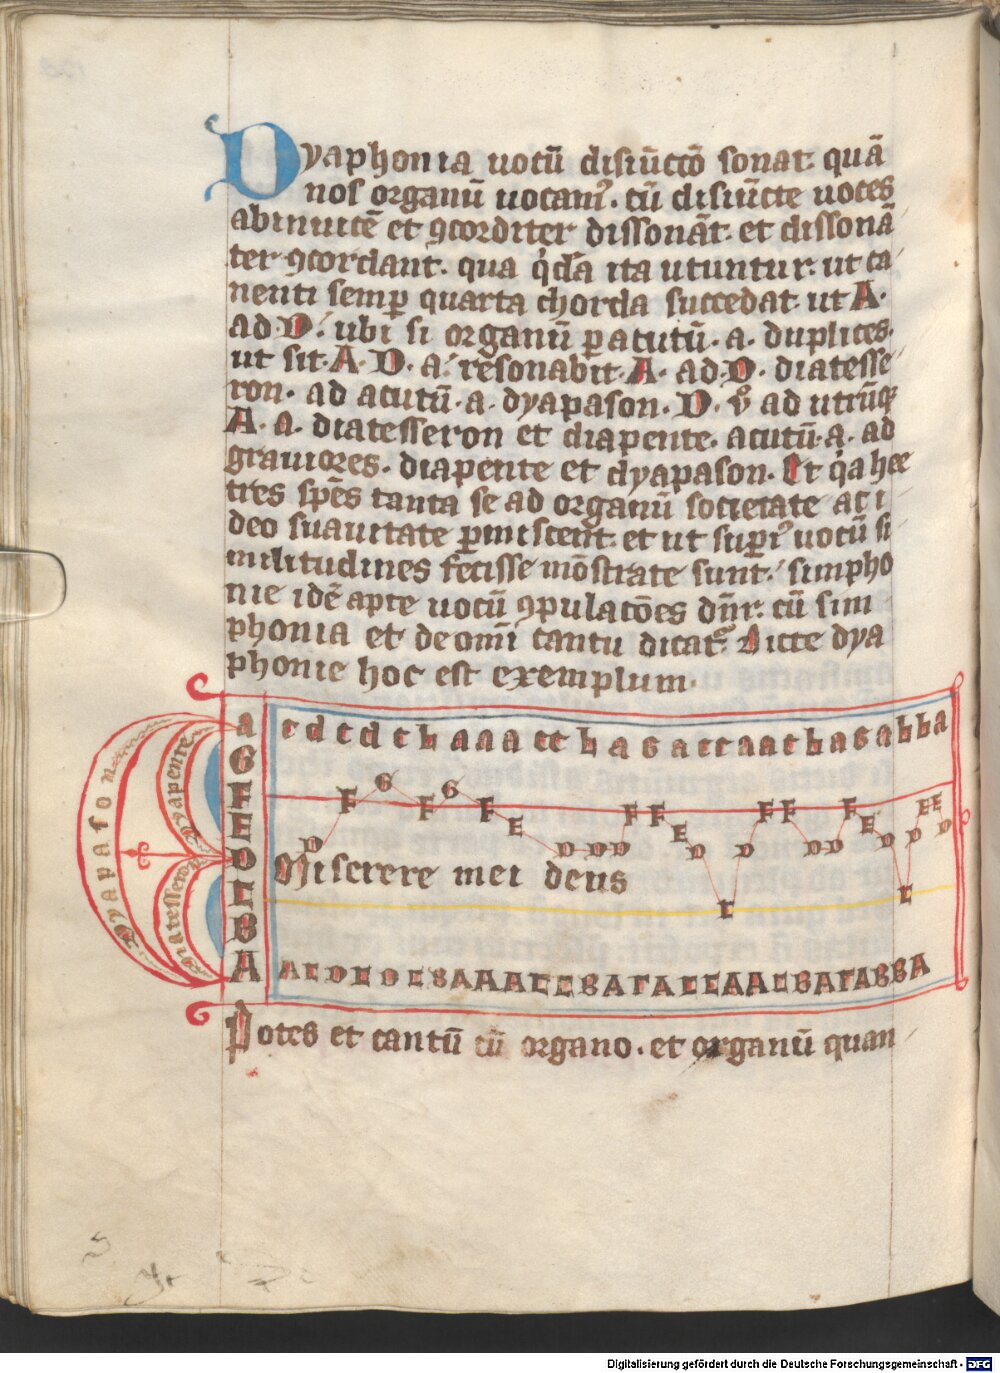 Dyaphonia uocū disiūcctō sonat. quā
nos organū uocamꝰ. cū disiūcte uoces
abinuicē et ꝯcorditer dissonāt. et dissonā
ter ꝯcordant. qua q̇dā ita utuntur. ut ca
nenti semp̱ quarta chorda succedat. ut A.
ad. D. ubi si organū p̱ acutū. a. duplices.
ut sit. A. D. a. resonabit. A. ad. D. diatesse
ron. ad acutū. a. dyapason. D. ů ad utrūqꝫ
A. a. diatesseron et diapente. acutū. a. ad
grauiores. diapente et dyapason. Et q̇a hee
tres spēs tanta se ad organū societate ac i
deo suauitate p̱miscent. et ut supiꝰ uocū si
militudines fecisse mōstrate sunt. simpho
nie idē apte uocū ꝯpulacōes dn̄r. cū sim
phonia et de omī cantu dicatᷣ. Dicte dya
phonie hoc est exemplum.
Dyapason
Dyapente
Diatesseron
a
G
F
E
D
C
B
A
c d c d c b a a a c c b a G a c c a a c b a G a b b a
D F G F G F E D D D F F E D C D F F D D F E D C D E E D
Miserere mei deus
A C D C D C B A A A C C B A Γ A C C A A C B A Γ A B B A
Potes et cantū cū organo. et organū quan
Digitalisierung gefördert durch die Deutsche Forschungsgemeinschaft - DFG